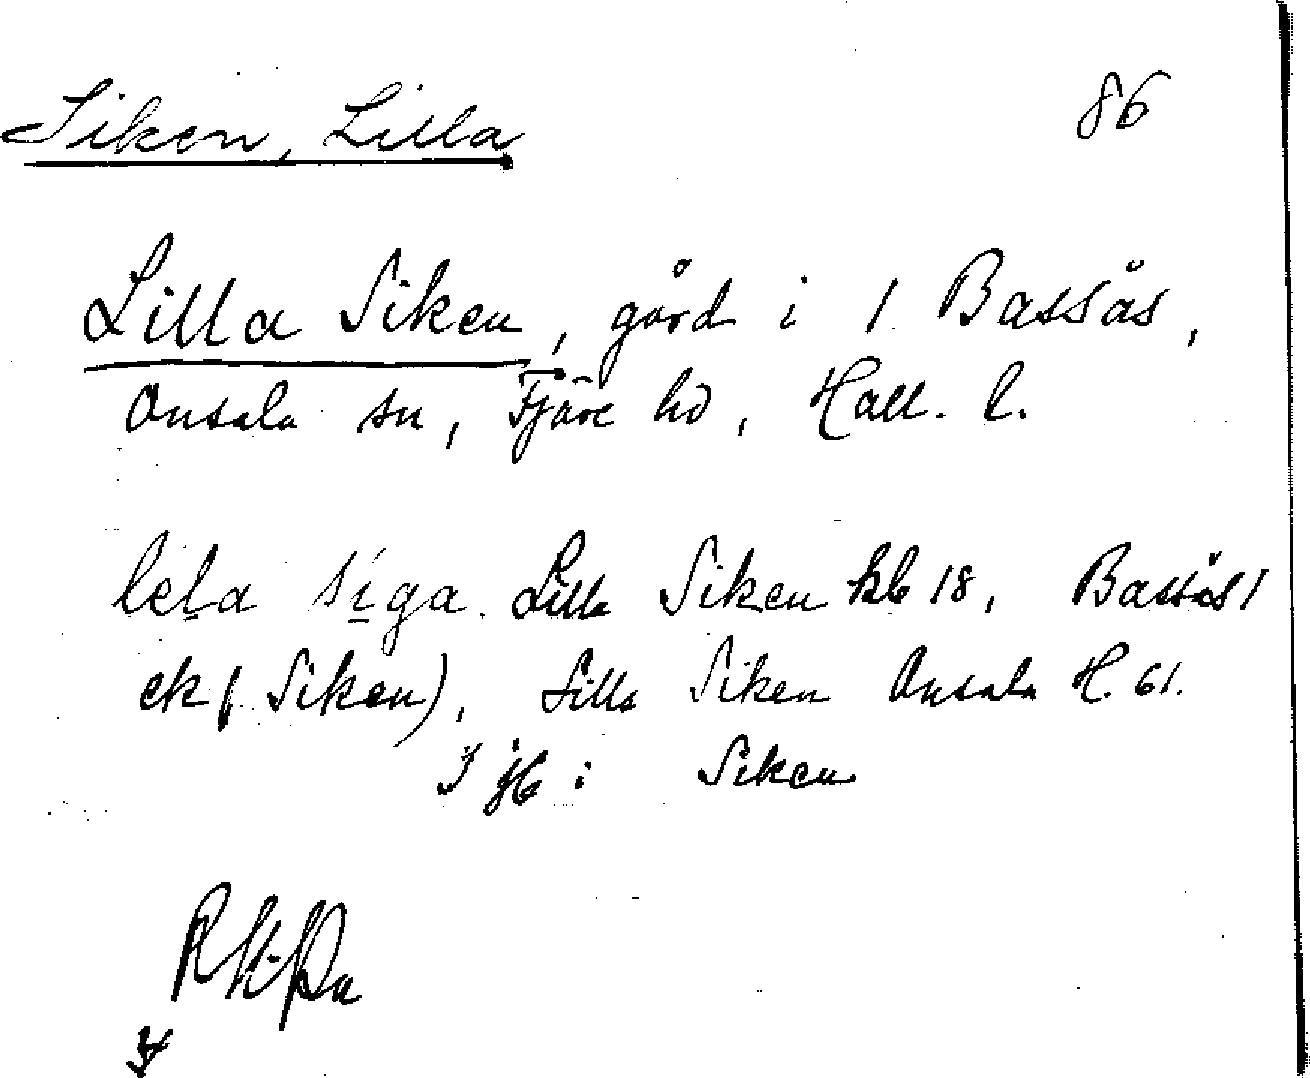 Siken, Lilla 86
Lilla Siken, gård i 1 Bassås,
Onsala sn, Fjäre hd, Hall. l.
lela siga. Lilla Siken kb 18, Bassås 1
ek ( Siken), Lilla Siken Onsala H. 61.
I jb : Siken